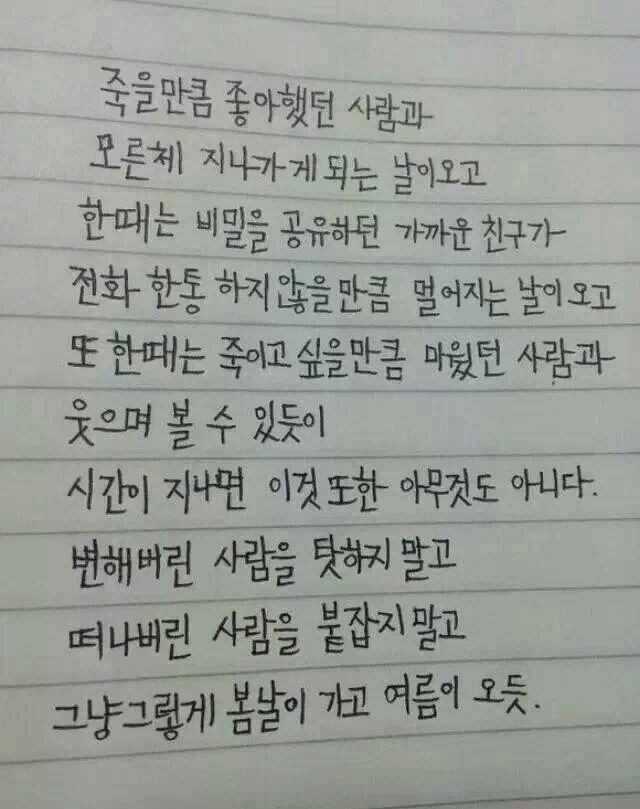 죽을만큼 좋아했던 사람과
모른체 지나가게 되는 날이오고
한때는 비밀을 공유하던 가까운 친구가
전화 한통 하지않을만큼 멀어지는 날이오고
또 한때는 죽이고 싶을만큼 미웠던 사람과
웃으며 볼 수 있듯이
시간이 지나면 이것 또한 아무것도 아니다.
변해버린 사람을 탓하지 말고
떠나버린 사람을 붙잡지 말고
그냥그렇게 봄날이 가고 여름이 오듯.